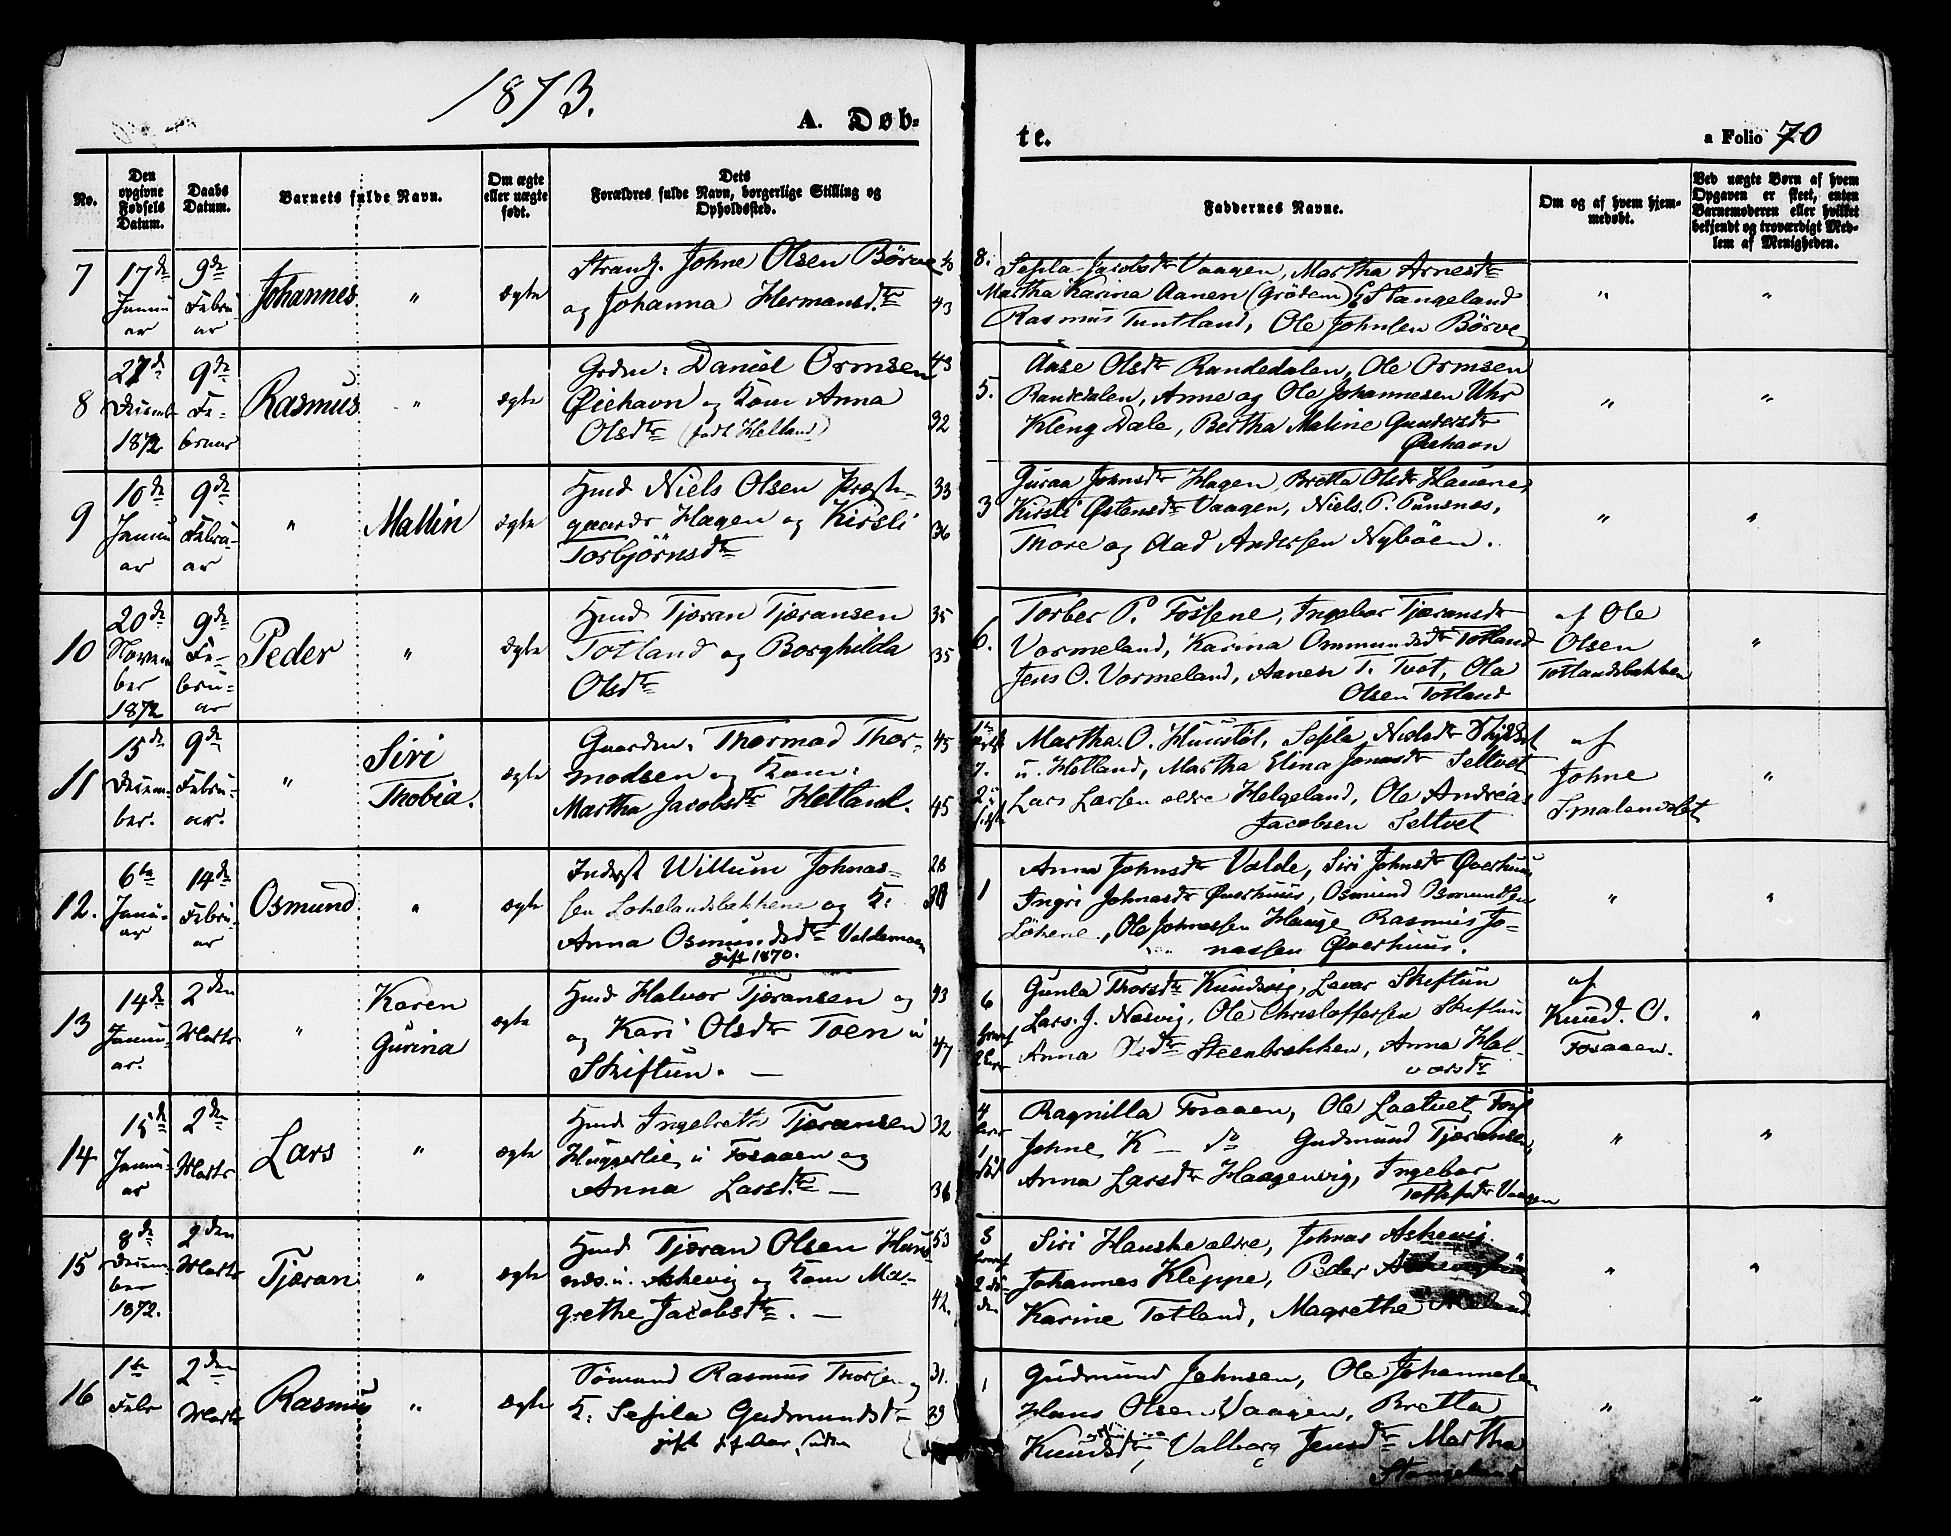 1873.
A. Døb-
te.
a Folio 70
No.
Den opgivne Fødsels Datum.
Daabs Datum.
Barnets fulde Navn.
Om ægte eller uægte født.
Dets Forældres fulde Navn, borgerlige Stilling og Opholdssted.
Faddernes Navne.
Om og af hvem hjem-
medøbt.
Ved uægte Børn af hvem
Opgaven er skeet, enten
Barnemoderen eller hvilket
bekjendt og troværdigt Med-
lem af Menigheden.
7
17de
Janu
ar
9de
Febru
ar
Johannes
"
ægte
Strands. Johne Olsen Börve
og Johanna Hermansdtr
43
8.
Sesila Jacobsdtr Vaagen, Martha Arnesdtr
Martha Karina Aanen (Gröden) Stangeland
Rasmus Tuntland, Ole Johnsen Börve
"
"
8
27de
Decemb
1872
9de
Fe-
bruar
Rasmus
"
ægte
Grdm: Daniel Ormsen
Øiehavn og Kone Anna
Olsdtr (født Helland)
43
32
5.
Aase Olsdtr Randedalen, Ole Ormsen
Randedalen, Anne og Ole Johannesen Uhr
Kleng Dale, Bertha Maline Gundersdtr
Øiehavn
"
"
9
10de
Janu
ar
9de
Febru-
ar
"
Mallin
ægte
Hmd Niels Olsen Præste-
gaards Hagen og Kirsti
Torbjörnsdtr
33
36
3
Guraa Johnsdtr Hagen, Bretta Olsdtr Hauene,
Kirsti Østensdtr Vaagen, Niels. P. Punsnes,
Thore og Aad Andersen Nyböen.
"
"
10
20de
Novem
ber
1872
9de
Fe-
bru-
ar
Peder
"
ægte
Hmd Tjæran Tjæransen
Totland og Borghilda
Olsdtr
35
35
6.
Torber P. Fossene, Ingebor Tjæransdtr
Vormeland, Karina Ommundsdtr Totland
Jens O. Vormeland, Aanen T. Tvet, Ola
Olsen Totland
af Ole
Olsen
Totlandsbakken
"
11
15de
Decem-
ber.
9de
Febru-
ar.
"
Siri
Thobia.
ægte
Gaardm: Thormod Thor-
modsen og Kone:
Martha Jacobsdtr Hetland.
45
45
7.
Martha. O. Huustöl, Sesila Nielsdtr
u. Hetland, Martha Elina Jonasdtr Seltvet
Lars Larsen ældre Helgeland, Ole Andreas
Jacobsen Seltvet
af
Johne
Smalendslet
"
12.
6te
Janu-
ar
14de
Febru-
ar
Osmund
"
ægte
Inderst Willum Johnas-
sen Lokelandsbakkene og K:
Anna Osmundsdtr Valdemoen
gift 1870.
28
1
Anna Johnsdtr Valde, Siri Johnsdtr Øverhuus
Ingri Johnasdtr Øverhuus, Osmund Osmundsen
Löhene, Ole Johnassen Hauge Rasmus Jo-
nassen Øverhuus.
"
"
13
14de
Janu-
ar.
2den
Marts
"
Karen
Gurina
ægte
Hmd Halvor Tjæransen og
og Kari Olsdtr Toen u
Skiftun.
43
47
6
Gunla Thorsdtr Kundevig, Lavar Skiftun
Lars. J. Næsvig, Ole Christoffersen Skiftun
Anna Steenbrækken, Anna Hal-
vorsdtr
af
Knud. O.
Fosaaen.
"
14
15de
Janu-
ar
2den
Marts
Lars
"
ægte
Hmd Ingebreth Tjæransen
Huggerlie, u Fosaaen og
Anna Larsdtr
32
36
4
Ragnilla Fosaaen, Ole Laatvet Fosf
Johne K — do Gudmund Tjæransen,
Anna Larsdtr Haagenvig, Ingebor
Vaagen
"
"
15
8de
Decem-
ber
1872.
2den
Marts
Tjæran
"
ægte
Hmd Tjæran Olsen Huus
næs. u. Askevig og Kone Ma-
grethe Jacobsdtr.
53
42.
5
Siri Hauske ældre, Johnas Askevig
Johannes Kleppe, Peder
Karine Totland, Magrethe
"
"
16
1te
Febr
2den
Marts
Rasmus
"
ægte
Sömand Rasmus Thorsen og
K: Sesila Gudmundsdtr
gift
31.
29
1
Gudmund Johnsen, Ole Johannesen
Hans Olsen Vaagen, Bretta
Knudsdtr, Valborg Jensdtr Martha
Stangeland
"
"